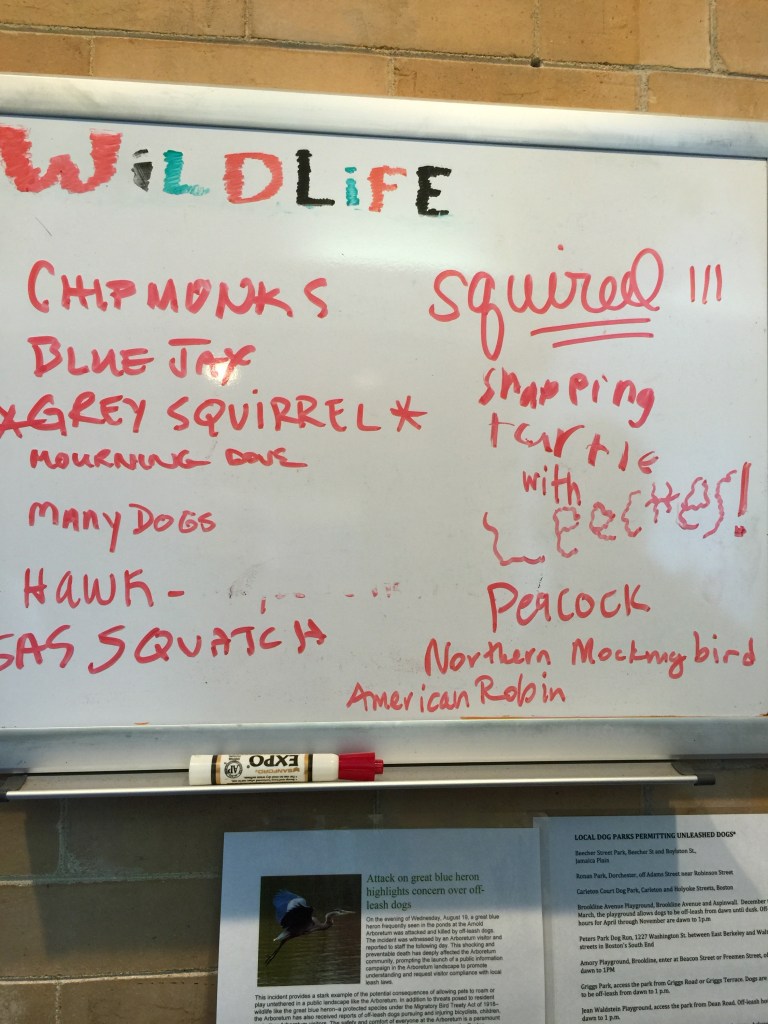 WiLDLiFE
CHIPMONKS
BLUE JAY
*GREY SQUIRREL*
MOURNING DOVE
MANY DOGS
HAWK -
SASSQUATCH
squirel !!!
snapping
turtle
with
LEECHES!
Peacock
Northern Mockingbird
American Robin
EXPO®
SANFORD
AP
Attack on great blue heron
highlights concern over off-
leash dogs
On the evening of Wednesday, August 16, a great blue
heron frequently seen in the ponds at the Arnold
Arboretum was attacked and killed by off-leash dogs.
The incident was witnessed by an Arboretum visitor and
reported to staff the following day. This shocking and
preventable death has deeply affected the Arboretum
community, prompting the launch of a public information
campaign in the Arboretum's landscape to promote
understanding and request visitor compliance with local
leash laws.
This incident provides a stark example of the potential consequences of allowing pets to roam or
play untethered in a public landscape like the Arboretum. In addition to threats posed to resident
wildlife like the great blue heron–a protected species under the Migratory Bird Treaty Act of 1918–
the Arboretum has also received reports of off-leash dogs pursuing and injuring bicyclists, children,
The safety and comfort of everyone at the Arboretum is a paramount
LOCAL DOG PARKS PERMITTING UNLEASHED DOGS*
Beecher Street Park, Beecher St and Boylston St.,
Jamaica Plain
Ronan Park, Dorchester, off Adams Street near Robinson Street
Carleton Court Dog Park, Carleton and Holyoke Streets, Boston
Brookline Avenue Playground, Brookline Avenue and Aspinwall. December
March, the playground allows dogs to be off-leash from dawn until dusk. Off-
hours for April through November are dawn to 1 p.m.
Peters Park Dog Run, 1227 Washington St. between East Berkeley and
streets in Boston's South End
Amory Playground, Brookline, enter at Beacon Street or Freeman Street,
dawn to 1PM
Griggs Park, access the park from Griggs Road or Griggs Terrace. Dogs are
to be off-leash from dawn to 1 p.m.
Jean Waldstein Playground, access the park from Dean Road. Off-leash
dawn to 1 p.m.